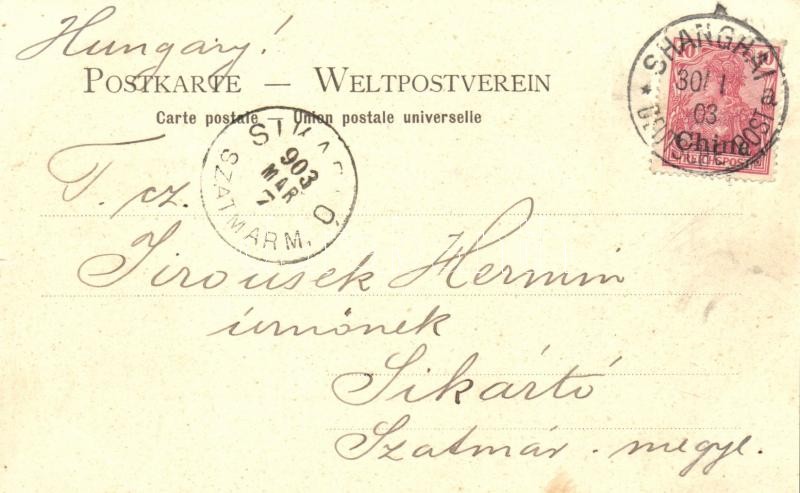 Hungary!
POSTKARTE — WELTPOSTVEREIN
Carte postale — Union postale universelle
SHANGHAI
30/1
03
a
* DEUTSCHE POST
China
REICHSPOST
903
MAR
7
SZATMAR M.
T. cz.
Jirousek Hermin
úrnőnek
Sikártó
Szatmár. megye.